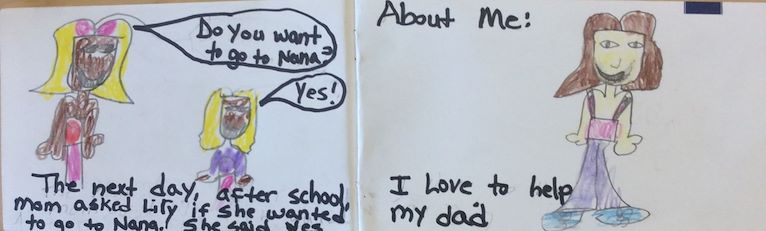 Do you want
to go to Nana?
Yes!
The next day, after school,
mom asked Lily if she wanted
to go to Nana. She said yes
About Me:
I Love to help
my dad